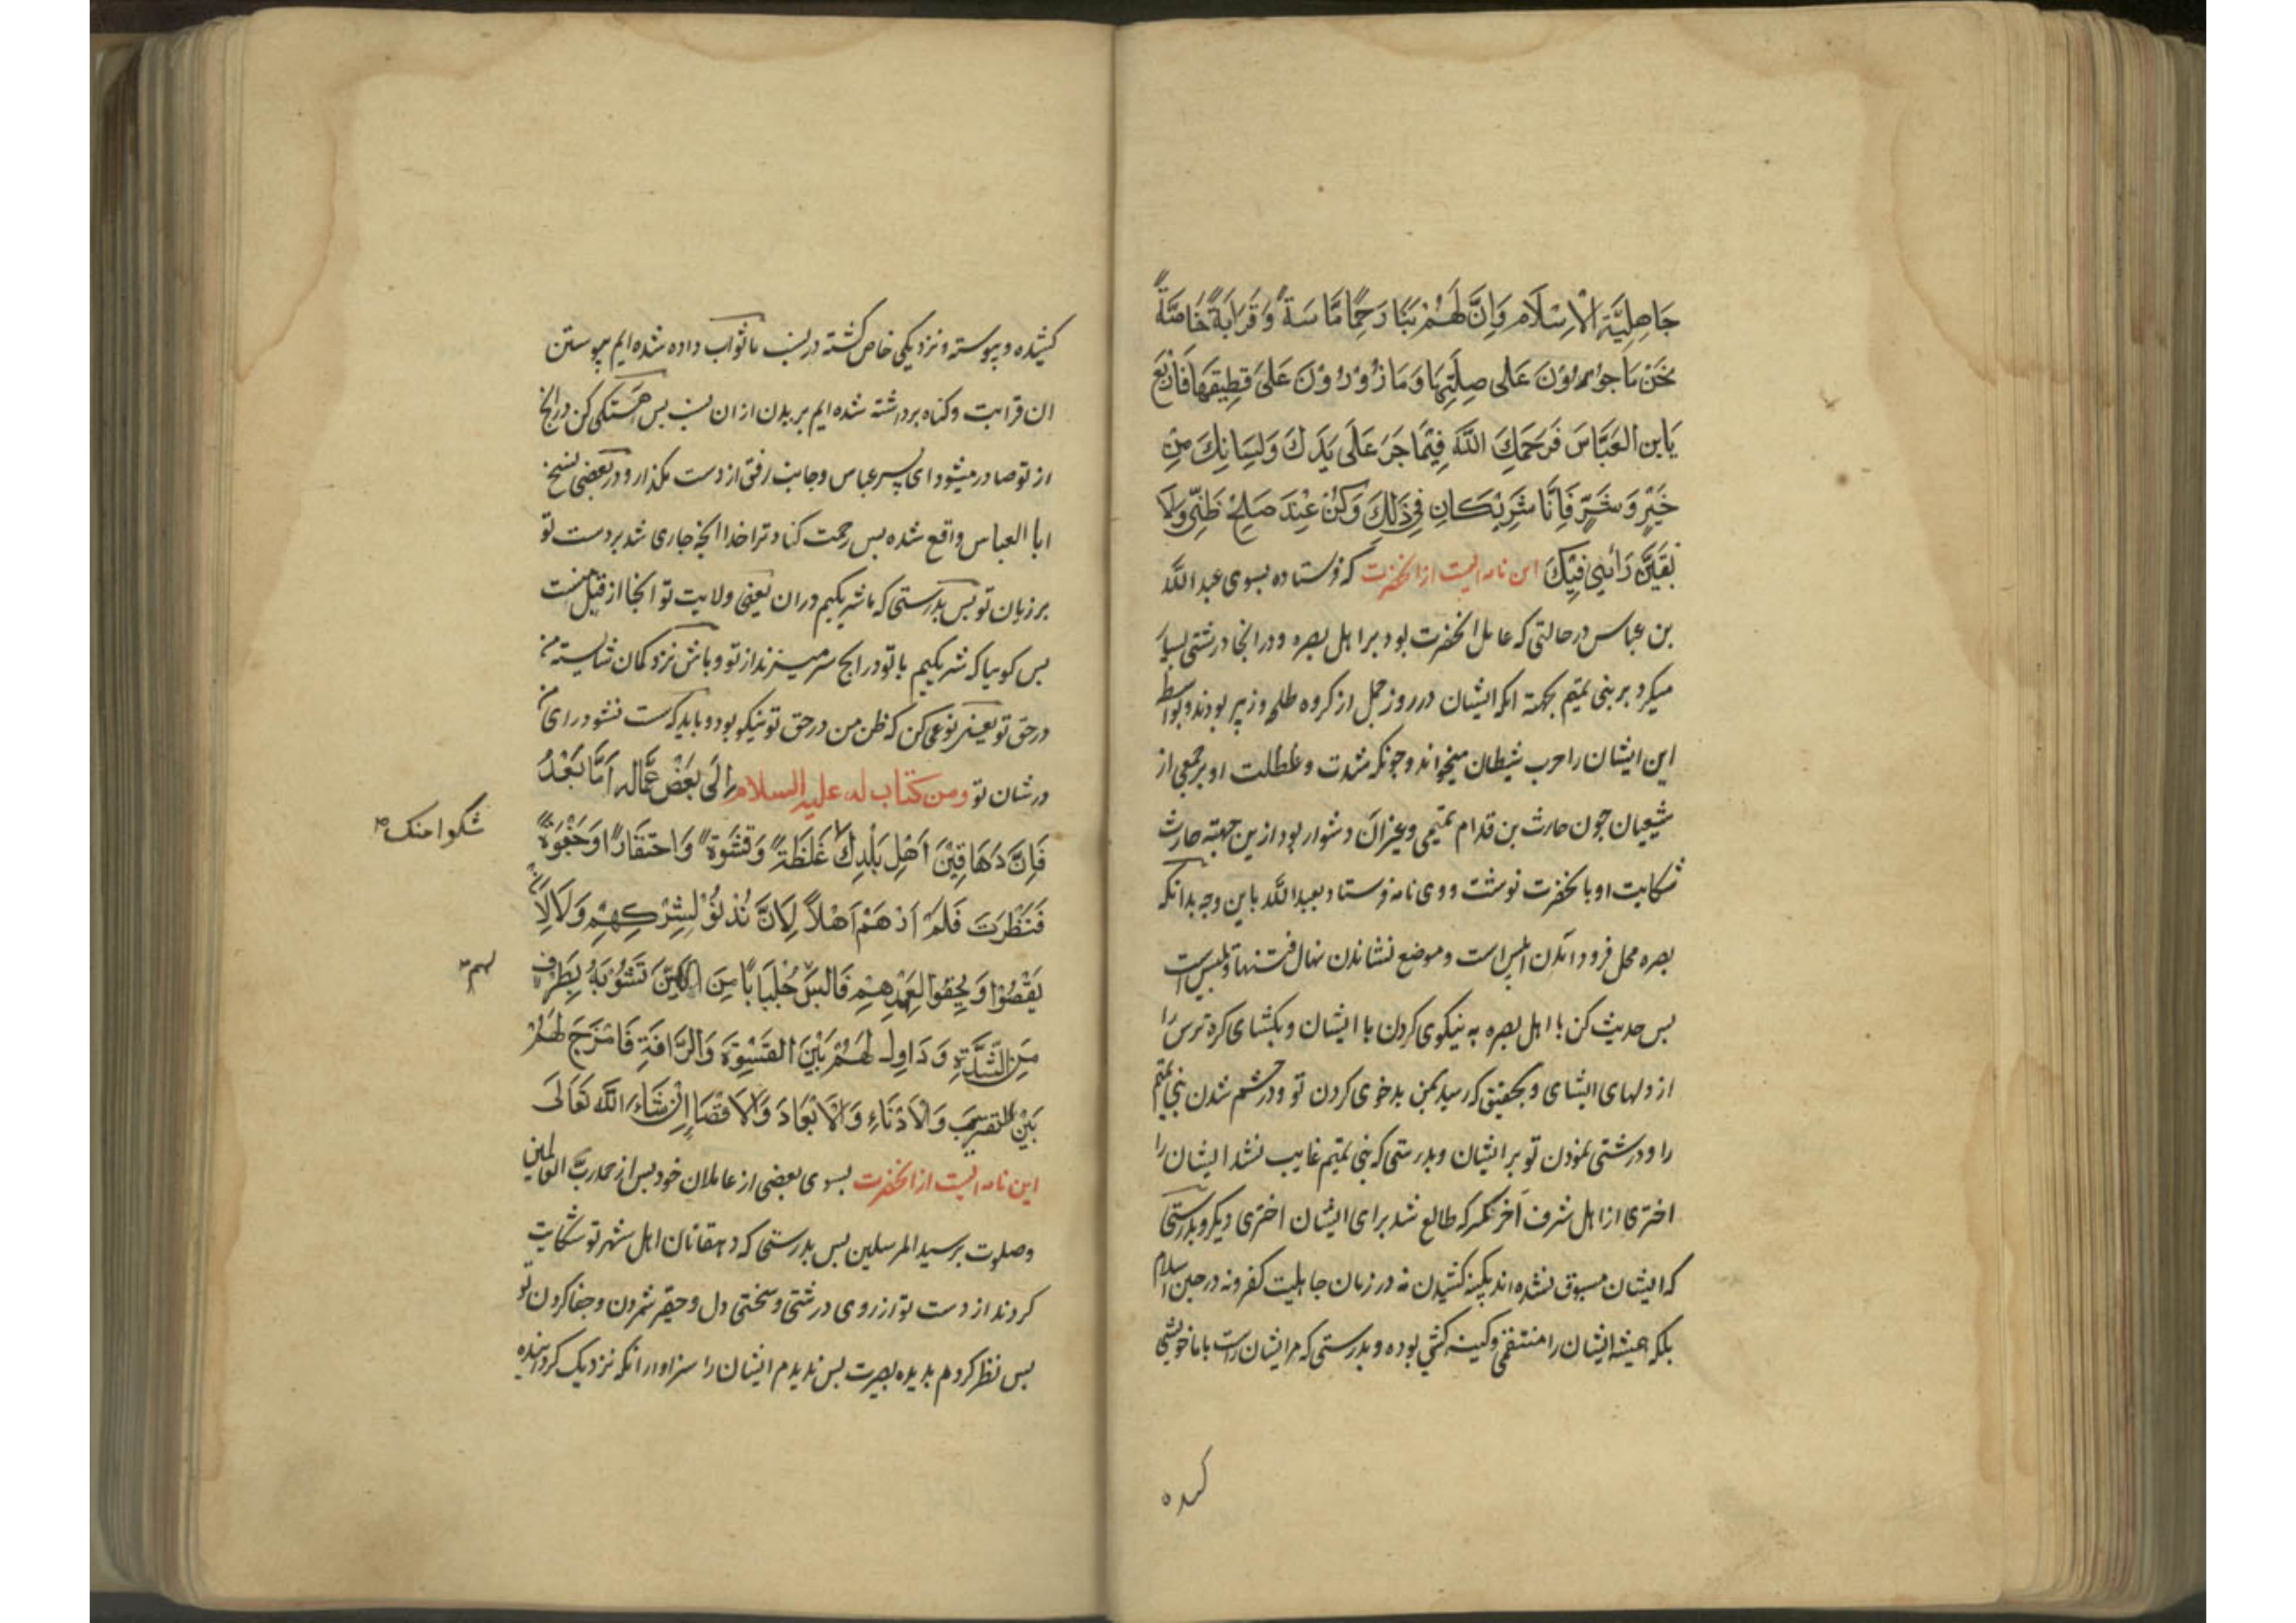 جَاهِلِيَّةِ الْاِسْلَام وَاِنَّ لَهُمْ بِنَا رَحِمًا مَّاسَةً وَقَرَابَةً خَاصَّةً
نَحْنُ مَاجورُوْنَ عَلى صِلَتِهَا وَمَازُوْرُوْنَ عَلىَ قَطِيعَهَا فَارْبَعْ
يَابن العَبَّاسَ فَرَحمَكَ اللَّهُ فِيْمَا جَرَ عَلَى يَدِكَ وَلِسَانِكَ مِنْ
خَيْرٍ وَشَرٍّ فَاِنَّا شَرِيْكَانِ فِى ذَلِكَ وَكُنْ عِنْدَ صَلِحْ ظَنِّى وَلَا
يَفيَلَنَّ رَائِيى فِيْكَ اين نامه ايست از انحضرت كه فرستاده بسوى عبد اللَّه
بن عباس در حالتى كه عامل انحضرت بود بر اهل بصره و در انجا درشتى بسيار
ميكرد بر بنى تميم بجهته انكه ايشان در روز جمل از كروه طلحه و زبير بودند و بواسطه
اين ايشان را حرب شيطان ميخواند و جونكه شدت و غلطلت او بر جمعى از
شيعيان جون حارث بن قدام تميمى و غيران دشوار بود ازين جهته حارث
شكايت او با نحضرت نوشت و وى نامه فرستاد بعبد اللَّه باين وجه بدانكه
بصره محل فرود امدن ابليس است و موضع نشاندن نهال فتنها و تلبيس است
بس حديث كن با اهل بصره به نيكوى كردن با ايشان و بكشاى كره ترس را
از دلهاى ايشاى و بتحقيق كه رسيد بمن بدخوى كردن تو و در خشم شدن بنى تميم
را و درشتى نمودن تو بر ايشان و بدرستى كه بنى تميم غايب نشد ايشان را
اخترى از اهل شرف آخر مكر كه طالع شد براى ايشان اخترى ديكر و بدرستى
كه ايشان مسبوق نشده اند بكينه كشيدن نه در زمان جاهليت كفر و نه در حين اسلام
بلكه هميشه ايشان را منتقمى و كينه كشى بوده و بدرستى كه مر ايشان راست با ما خويشى
كشيده
كشيده و بيوسته و نزديكى خاص كشته در نسب ما ثواب داده شده ايم به بيوستن
ان قرابت و كناه برداشته شده ايم بر بريدن از ان نسب بس اهستكى كن در انجه
از تو صادر ميشود اى پسر عباس و جانب رفق از دست مكذار و در بعضى نسخ
ابا العباس واقع شده بس رحمت كناد ترا خدا انجه جارى شد بر دست تو
بر زبان تو بس بدرستى كه ما شريكيم در ان يعنى ولايت تو انجا از قبل منست
بس كوييا كه شريكيم با تو در انجه سر ميزند از تو و باش نزد كمان شايسته من
در حق تو يعنى نوعى كن كه ظن من در حق تو نيكو بود و بايد كه سست نشود راى من
در شان تو ومن كتاب له عليه السلام اِلَى بَعْضِ عُمَّاله اَمَّا بَعْدُ
فَاِنَّ دَهَاقِيْنَ اَهْلِ بَلْدِكَ غَلْظَةً وَقَسْوَةً وَاحتقَارًا وَجَفْوَةً
شكوا منك
فَنَظَرْتَ فَلَمْ اَرَهُمْ اَهْلاً لِاَنَّ يُدْنَوْ لِشِرْكِهِمْ وَلَا لِاَنْ
يَقْصُوْا وَيُجفوا لِعَهْدِهِمْ فَالبَسْ جُلْبَابًا مِنَ اللّيْنَ تَشُوْبَهُ بِطَرَف
لهم
مِنَ الشِّدَّةِ وَدَاوِلْ لَهُمْ بَيْنَ القَسْوَةَ وَالرَّافَةِ فَامْزَجْ لَهُمْ
بَيْنَ التقريب وَالْاَدْنَاءِ وَالْاِبْعَادَ وَالاقْصَاءِ اِنْ شَاءَ اللَّه تَعَالَى
اين نامه ايست از انحضرت بسوى بعضى از عاملان خود بس از حمد ربّ العالمين
وصلوت بر سيد المرسلين بس بدرستى كه دهقانان اهل شهر تو شكايت
كردند از دست تو از روى درشتى و سختى دل و حقير شمردن و جفا كردن تو
بس نظر كردم بديده بصيرت بس نديدم ايشان را سزاوار انكه نزديك كردانيده